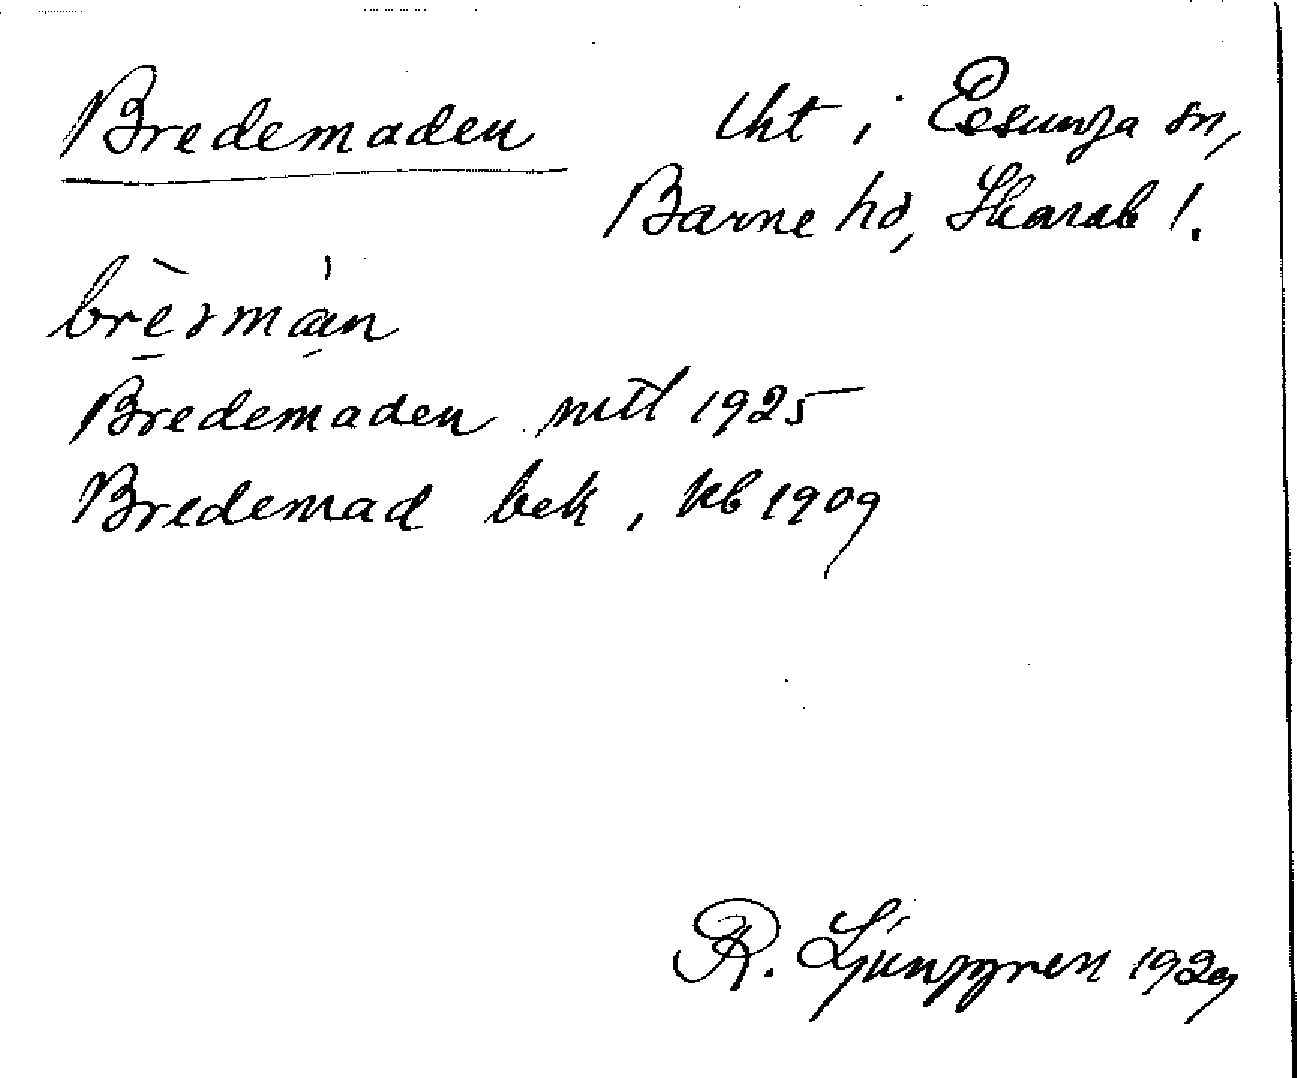 Bredemaden lht i Essunga sn,
Barne hd, Skarab l.
Bredemaden mtl 1925
Bredemad bek, kb 1909
R. Ljunggren 1929